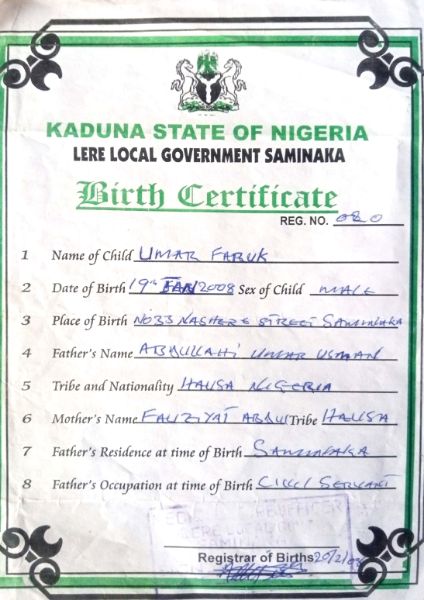 KADUNA STATE OF NIGERIA
LERE LOCAL GOVERNMENT SAMINAKA
Birth Certificate
REG. NO. 080
1 Name of Child UMAR FARUK
2 Date of Birth 19th JAN 2008 Sex of Child MALE
3 Place of Birth NO33 NASHERE STREET SAMINAKA
4 Father's Name ABDULLAHI UMAR USMAN
5 Tribe and Nationality HAUSA NIGERIA
6 Mother's Name FAUZIYAT ABDUL Tribe HAUSA
7 Father's Residence at time of Birth SAMINAKA
8 Father's Occupation at time of Birth CIVIL SERVANT
Registrar of Births 20/2/08